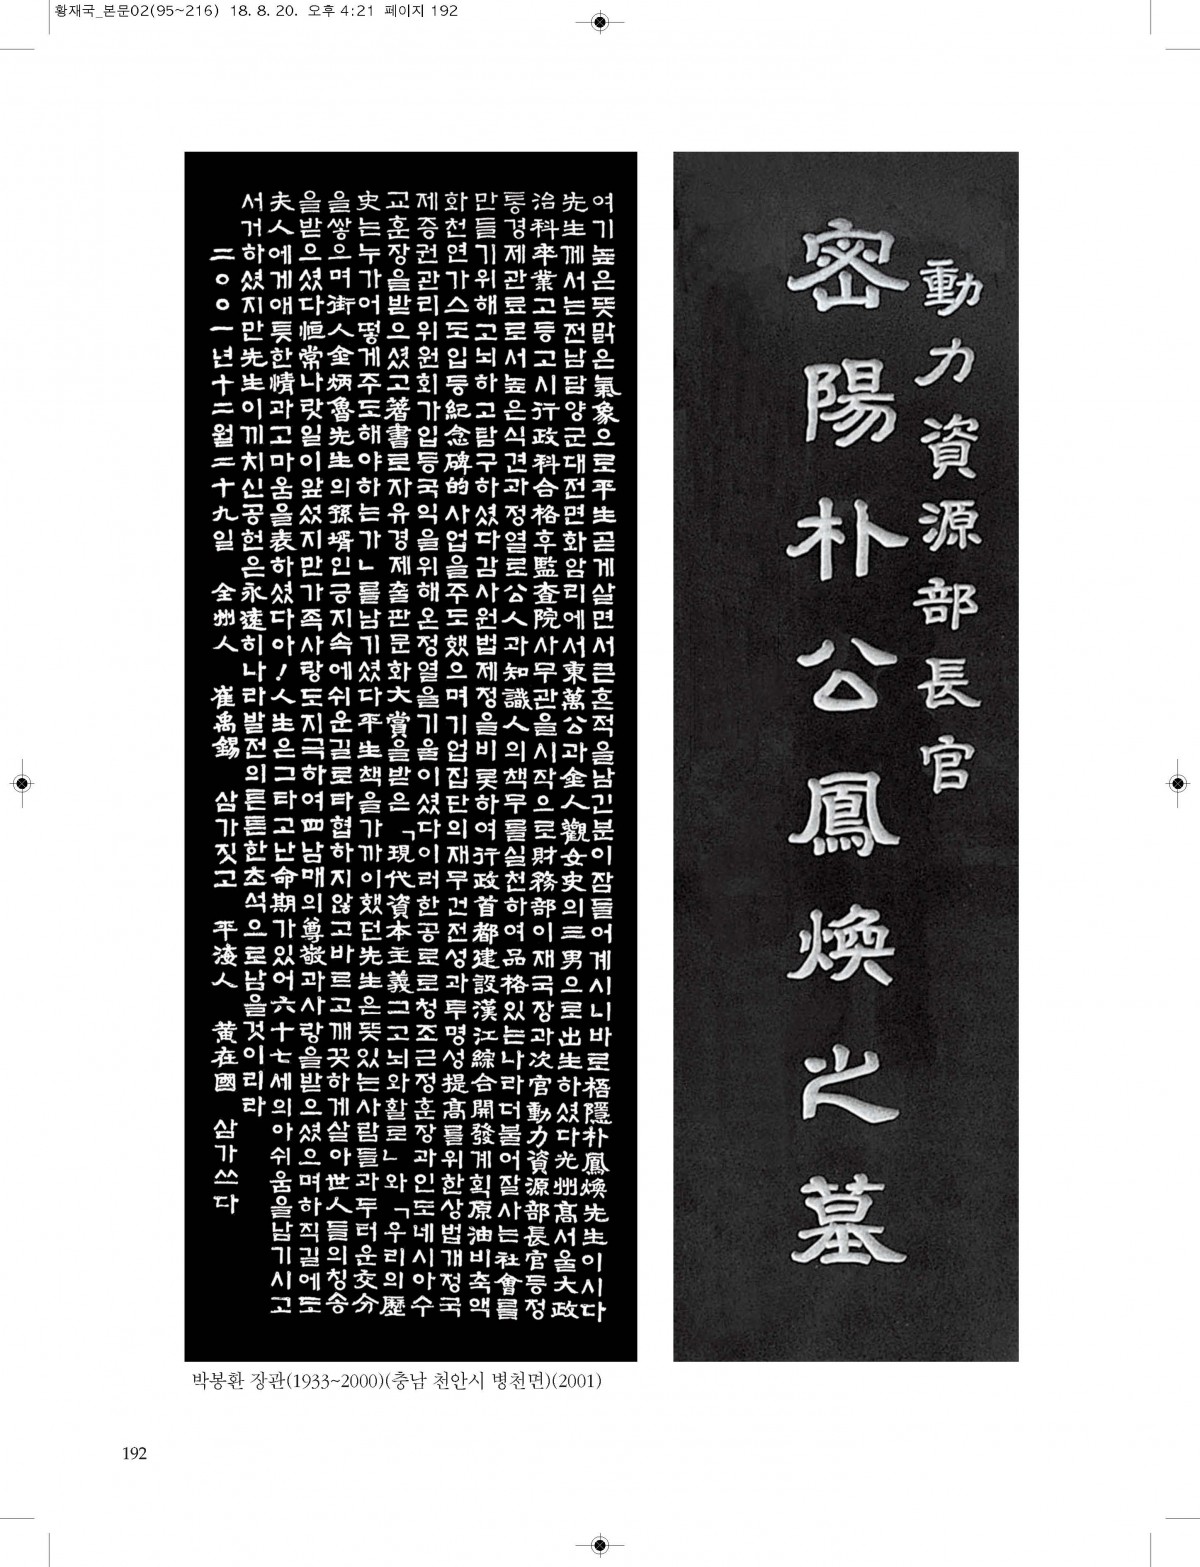 황재국_본문02(95~216) 18. 8. 20. 오후 4:21 페이지 192
動力資源部長官
密陽朴公鳳煥之墓
여기높은뜻맑은氣象으로平生곧게살면서큰흔적을남긴분이잠들어계시니바로梧隱朴鳳煥先生이시다
先生께서는전남담양군대전면화암리에서東萬公과金人觀女史의三男으로出生하셨다光州高서울大政
治科卒業고등고시行政科合格후監査院사무관을시작으로財務部이재국장과次官動力資源部長官등정
통경제관료로서높은식견과정열로公人과知識人의책무를실천하여品格있는나라더불어잘사는社會를
만들기위해고뇌하고탐구하셨다감사원법제정을비롯하여行政首都建設漢江綜合開發계획原油비축액
화천연가스도입등紀念碑的사업을주도했으며기업집단의재무건전성과투명성提高를위한상법개정국
제증권관리위원회가입등국익을위해온정열을기울이셨다이러한공로로청조근정훈장과인도네시아수
교훈장을받으셨고著書로자유경제출판문화大賞을받은「現代資本主義그고뇌와활로」와「우리의歷
史는누가어떻게주도해야하는가」를남기셨다平生책을가까이했던先生은뜻있는사람들과두터운交分
을쌓으며街人金炳魯先生의孫壻인긍지속에쉬운길로타협하지않고바르고깨끗하게살아世人들의칭송
을받으셨다恒常나랏일이앞섰지만가족사랑도지극하여四남매의尊敬과사랑을받으셨으며하직길에도
夫人에게애틋한情과고마움을表하셨다아!人生은그타고난命期가있어六十七세의아쉬움을남기시고
서거하셨지만先生이끼치신공헌은永遠히나라발전의튼튼한초석으로남을것이리라
二○○一년十二월二十九일 全州人 崔禹錫 삼가짓고 平海人 黃在國 삼가쓰다
박봉환 장관(1933~2000)(충남 천안시 병천면)(2001)
192